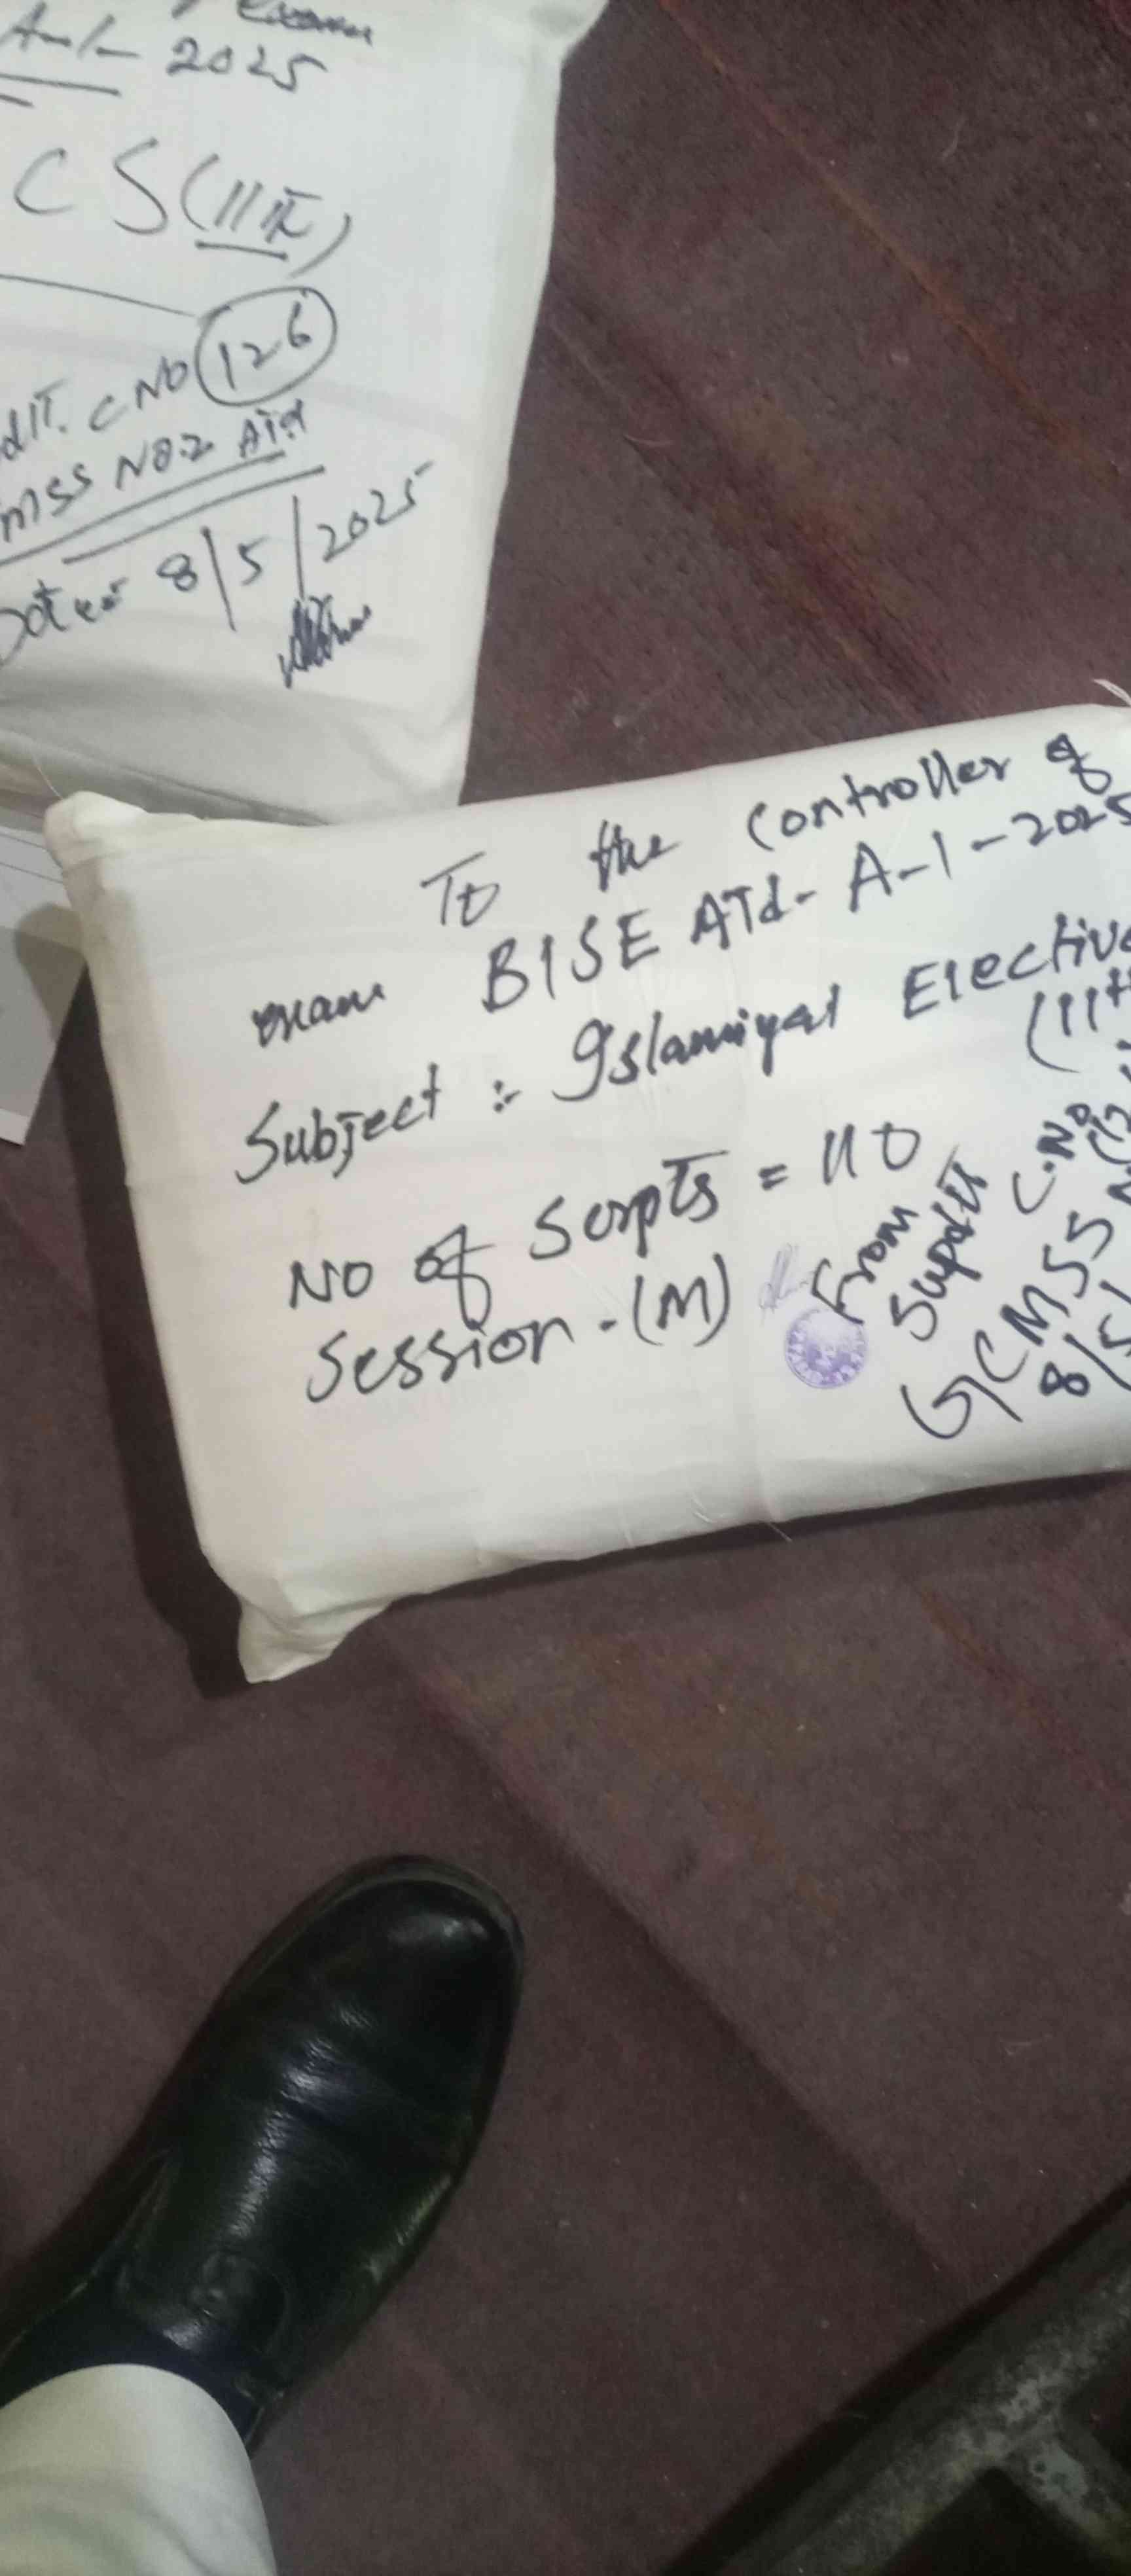 A-1- 2025
CS(11th)
C NO 126
MSS NO.2 ATd
Date:- 8/5/2025
To the Controller of
exam BISE ATd- A-1-2025
Subject :- Islamiyat Elective
(11th
No of Scrpts = 110
Session - (M)
From
Supdtt C.No
GCMSS
8/5/